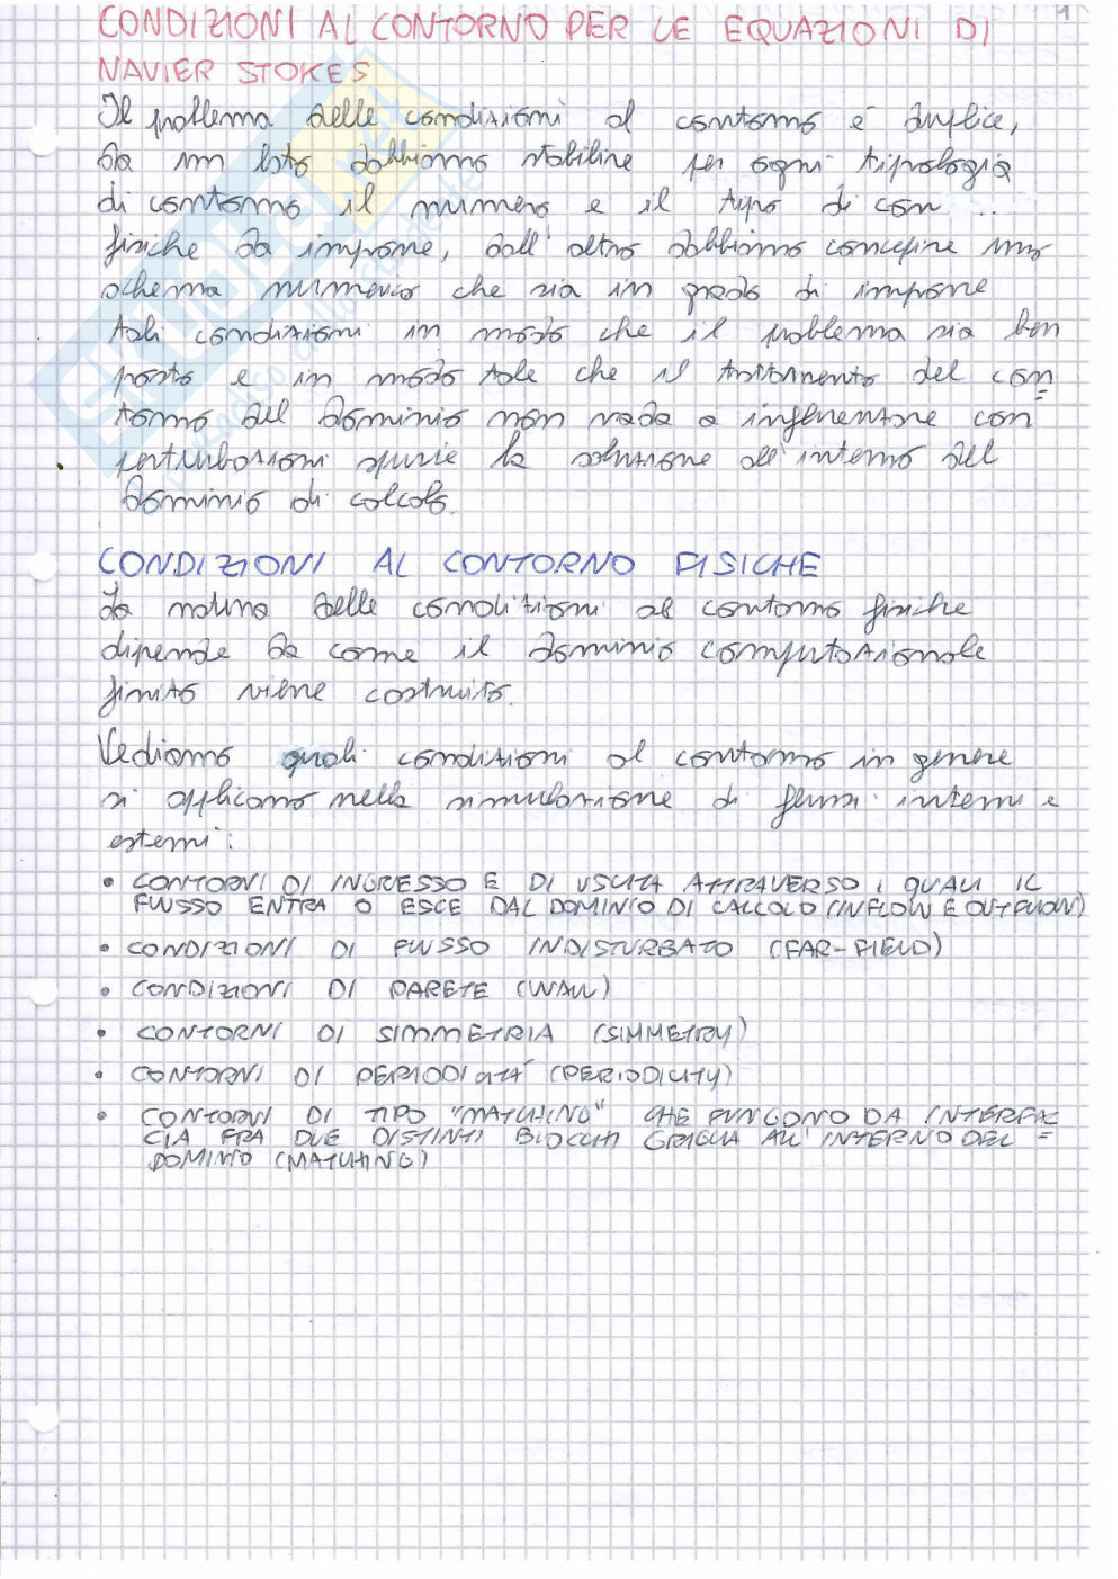 1
CONDIZIONI AL CONTORNO PER LE EQUAZIONI DI
NAVIER STOKES
Il problema delle condizioni al contorno è duplice,
da un lato dobbiamo stabilire per ogni tipologia
di contorno il numero e il tipo di con...
fisiche da imporre, dall'altro dobbiamo concepire uno
schema numerico che sia in grado di imporre
tali condizioni in modo che il problema sia ben
posto e in modo tale che il trattamento del con=
torno del dominio non vada a influenzare con
perturbazioni spurie la soluzione all'interno del
dominio di calcolo.
CONDIZIONI AL CONTORNO FISICHE
La natura delle condizioni al contorno fisiche
dipende da come il dominio computazionale
finito viene costruito.
Vediamo quali condizioni al contorno in genere
si applicano nella simulazione di flussi interni e
esterni:
• CONTORNI DI INGRESSO E DI USCITA ATTRAVERSO I QUALI IL
FLUSSO ENTRA O ESCE DAL DOMINIO DI CALCOLO (INFLOW E OUTFLOW)
• CONDIZIONI DI FLUSSO INDISTURBATO (FAR-FIELD)
• CONDIZIONI DI PARETE (WALL)
• CONTORNI DI SIMMETRIA (SIMMETRY)
• CONTORNI DI PERIODICITÀ (PERIODICITY)
• CONTORNI DI TIPO "MATCHING" CHE FUNGONO DA INTERFAC=
CIA FRA DUE DISTINTI BLOCCHI GRIGLIA ALL'INTERNO DEL
DOMINIO (MATCHING)
SKUOLA.net